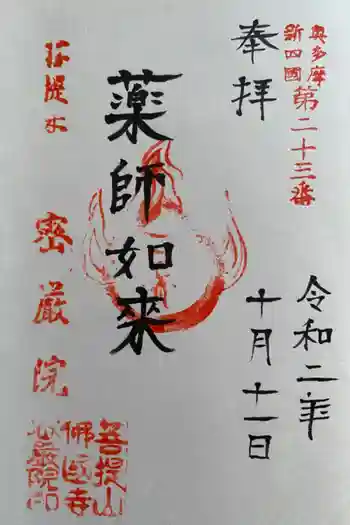 奥多摩
新四國
第二十三番
奉拝
令和二年
十月十一日
薬師如来
菩提水
密厳院
菩提山
佛国寺